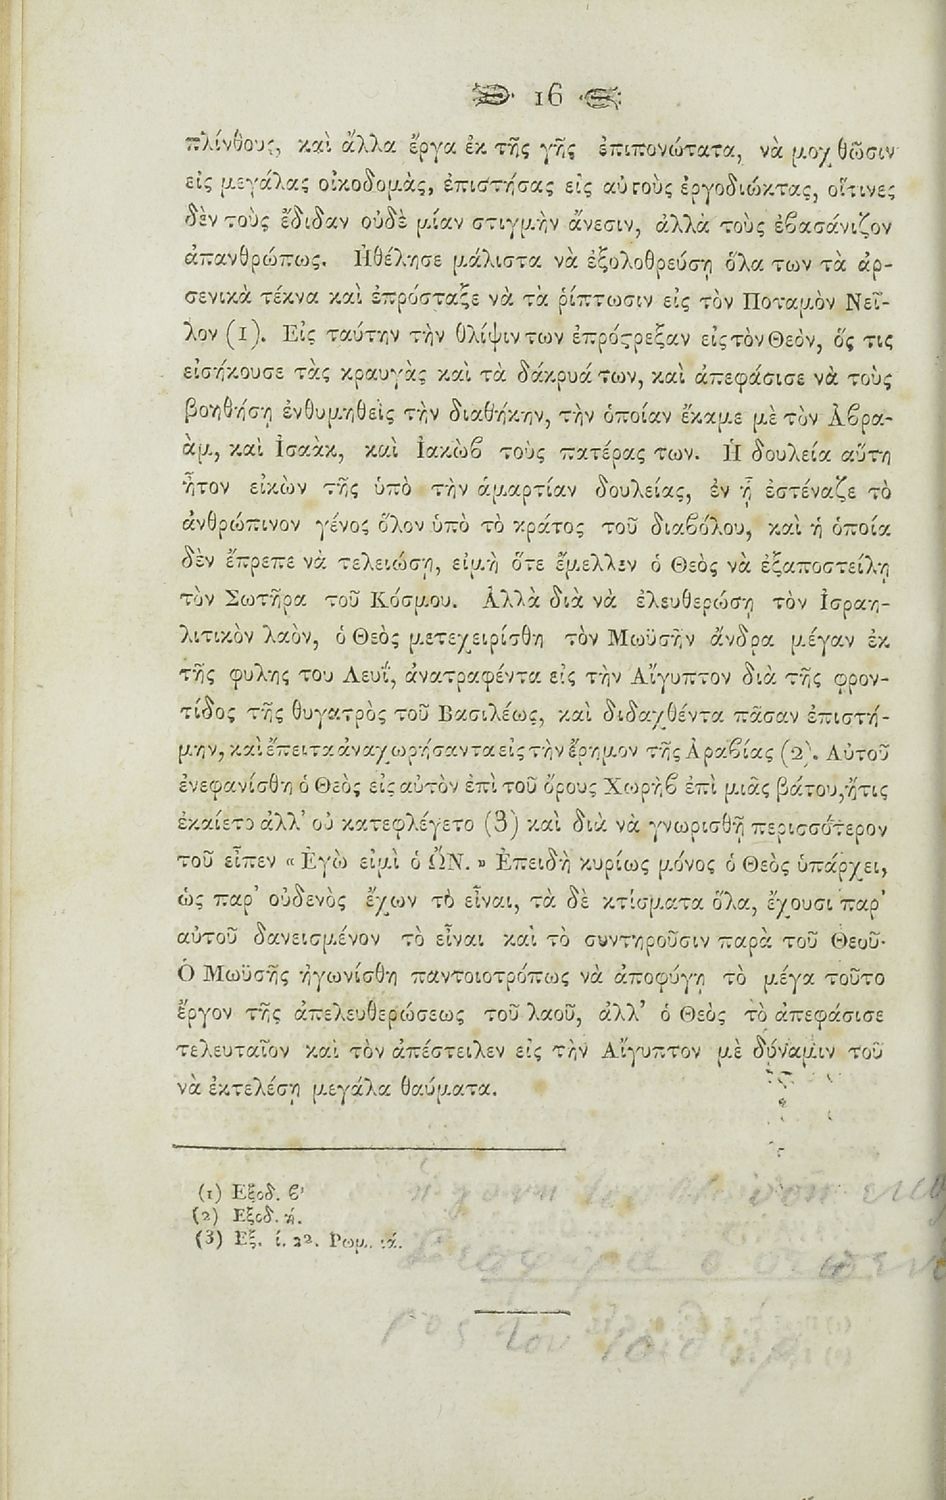 16
πλίνθους, καὶ ἄλλα ἔργα ἐκ τῆς γῆς ἐπιπονώτατα, νὰ μοχθῶσιν
εἰς μεγάλας οἰκοδομὰς, ἐπιστήσας εἰς αὐτοὺς ἐργοδιώκτας, οἵτινες
δὲν τοὺς ἔδιδαν οὐδὲ μίαν στιγμὴν ἄνεσιν, ἀλλὰ τοὺς ἐβασάνιζον
ἀπανθρώπως. Ἠθέλησε μάλιστα νὰ ἐξολοθρεύσῃ ὅλα των τὰ ἀρ-
σενικὰ τέκνα καὶ ἐπρόσταξε νὰ τὰ ῥίπτωσιν εἰς τὸν Ποταμὸν Νεῖ-
λον (1). Εἰς ταύτην τὴν θλίψιν των ἐπρότρεξαν εἰς τὸν Θεὸν, ὅς τις
εἰσήκουσε τὰς κραυγὰς καὶ τὰ δάκρυά των, καὶ ἀπεφάσισε νὰ τοὺς
βοηθήσῃ ἐνθυμηθεὶς τὴν διαθήκην, τὴν ὁποίαν ἔκαμε μὲ τὸν Ἀβρα-
ὰμ, καὶ Ἰσαὰκ, καὶ Ἰακὼβ τοὺς πατέρας των. Ἡ δουλεία αὕτη
ἦτον εἰκὼν τῆς ὑπὸ τὴν ἁμαρτίαν δουλείας, ἐν ᾗ ἐστέναζε τὸ
ἀνθρώπινον γένος ὅλον ὑπὸ τὸ κράτος τοῦ διαβόλου, καὶ ἡ ὁποία
δὲν ἔπρεπε νὰ τελειώσῃ, εἰμὴ ὅτε ἔμελλεν ὁ Θεὸς νὰ ἐξαποστείλῃ
τὸν Σωτῆρα τοῦ Κόσμου. Ἀλλὰ διὰ νὰ ἐλευθερώσῃ τὸν Ἰσραη-
λιτικὸν λαὸν, ὁ Θεὸς μετεχειρίσθη τὸν Μωϋσῆν ἄνδρα μέγαν ἐκ
τῆς φυλης του Λευῒ, ἀνατραφέντα εἰς τὴν Αἴγυπτον διὰ τῆς φρον-
τίδος τῆς θυγατρὸς τοῦ Βασιλέως, καὶ διδαχθέντα πᾶσαν ἐπιστή-
μην, καὶ ἔπειτα ἀναχωρήσαντα εἰς τὴν ἔρημον τῆς Ἀραβίας (2). Αὐτοῦ
ἐνεφανίσθη ὁ Θεὸς εἰς αὐτὸν ἐπὶ τοῦ ὄρους Χωρὴβ ἐπὶ μιᾶς βάτου, ἥτις
ἐκαίετο ἀλλ' οὐ κατεφλέγετο (3) καὶ διὰ νὰ γνωρισθῇ περισσότερον
τοῦ εἶπεν « Ἐγὼ εἰμὶ ὁ ὪΝ. » Ἐπειδὴ κυρίως μόνος ὁ Θεὸς ὑπάρχει,
ὡς παρ' οὐδενὸς ἔχων τὸ εἶναι, τὰ δὲ κτίσματα ὅλα, ἔχουσι παρ'
αὐτοῦ δανεισμένον τὸ εἶναι καὶ τὸ συντηροῦσιν παρὰ τοῦ Θεοῦ·
Ὁ Μωϋσῆς ἠγωνίσθη παντοιοτρόπως νὰ ἀποφύγῃ τὸ μέγα τοῦτο
ἔργον τῆς ἀπελευθερώσεως τοῦ λαοῦ, ἀλλ' ὁ Θεὸς τὸ ἀπεφάσισε
τελευταῖον καὶ τὸν ἀπέστειλεν εἰς τὴν Αἴγυπτον μὲ δύναμιν τοῦ
νὰ ἐκτελέσῃ μεγάλα θαύματα.
(1) Εξοδ. β'
(2) Εξοδ.
(3) Εξ. Ῥωμ.